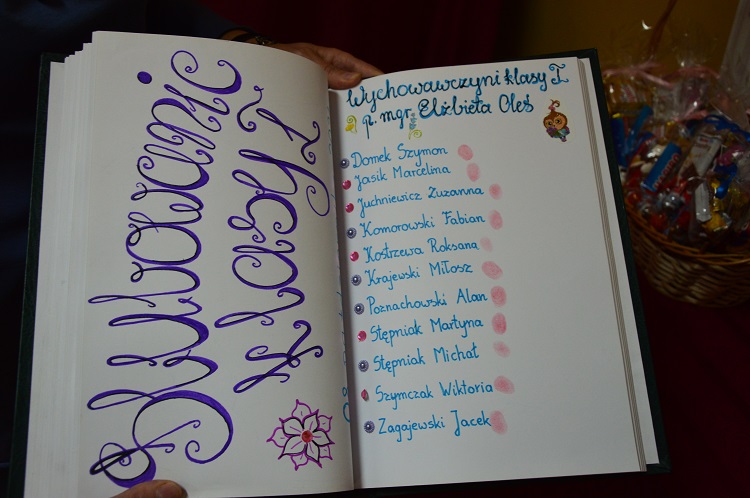 Ślubowanie
klasy I
Wychowawczyni klasy I
p. mgr. Elżbieta Oleś
Domek Szymon
Jasik Marcelina
Juchniewicz Zuzanna
Komorowski Fabian
Kostrzewa Roksana
Krajewski Miłosz
Poznachowski Alan
Stępniak Martyna
Stępniak Michał
Szymczak Wiktoria
Zagajewski Jacek